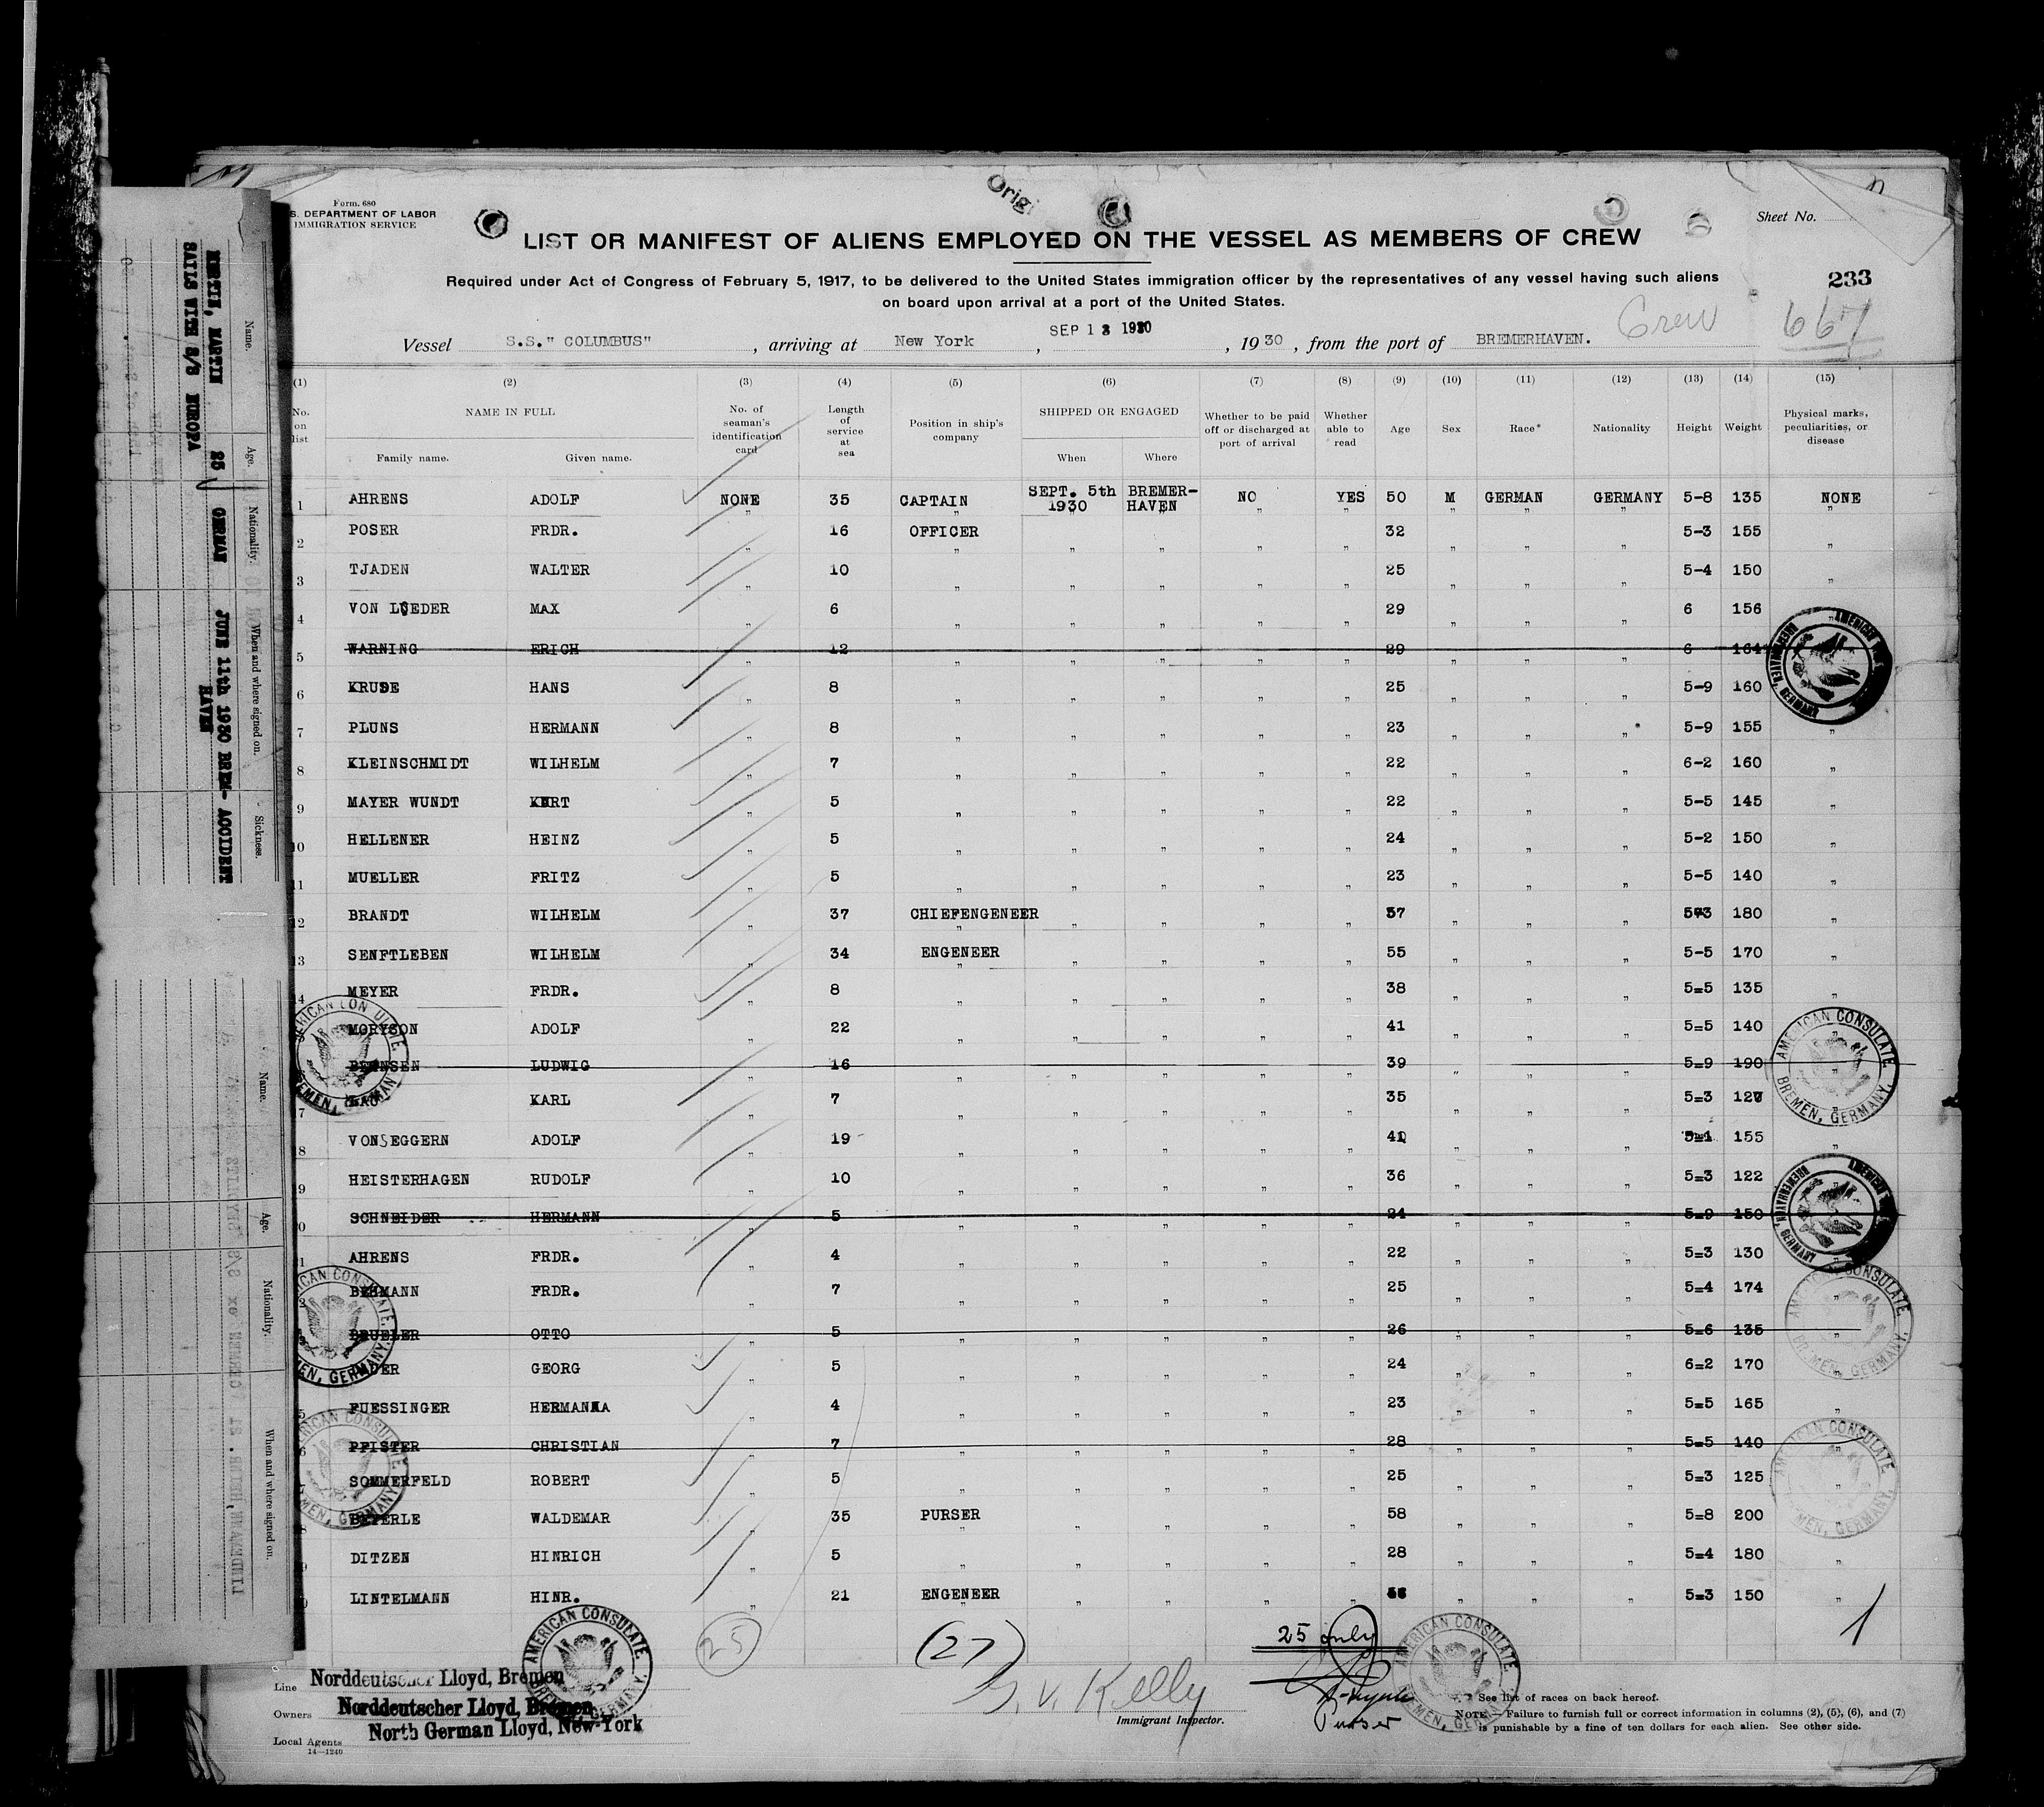 Form. 680
S. DEPARTMENT OF LABOR
IMMIGRATION SERVICE
Origi
Sheet No.
LIST OR MANIFEST OF ALIENS EMPLOYED ON THE VESSEL AS MEMBERS OF CREW
233
Required under Act of Congress of February 5, 1917, to be delivered to the United States immigration officer by the representatives of any vessel having such aliens
on board upon arrival at a port of the United States.
Crew 667
SEP 13 1930
Vessel S.S." COLUMBUS" , arriving at New York , , 1930 , from the port of BREMERHAVEN.
(1) (2) (3) (4) (5) (6) (7) (8) (9) (10) (11) (12) (13) (14) (15)
No. on list NAME IN FULL Family name. Given name. No. of seaman's identification card Length of service at sea Position in ship's company SHIPPED OR ENGAGED When Where Whether to be paid off or discharged at port of arrival Whether able to read Age Sex Race* Nationality Height Weight Physical marks, peculiarities, or disease
1 AHRENS ADOLF NONE 35 CAPTAIN SEPT. 5th 1930 BREMER-HAVEN NO YES 50 M GERMAN GERMANY 5-8 135 NONE
2 POSER FRDR. " 16 OFFICER " " " " 32 " " " 5-3 155 "
3 TJADEN WALTER " 10 " " " " " 25 " " " 5-4 150 "
4 VON LOEDER MAX " 6 " " " " " 29 " " " 6 156 "
5 WARNING ERICH " 12 " " " " " 29 " " " 6 164
6 KRUSE HANS " 8 " " " " " 25 " " " 5-9 160
7 PLUNS HERMANN " 8 " " " " " 23 " " " 5-9 155 "
8 KLEINSCHMIDT WILHELM " 7 " " " " " 22 " " " 6-2 160 "
9 MAYER WUNDT KURT " 5 " " " " " 22 " " " 5-5 145 "
10 HELLENER HEINZ " 5 " " " " " 24 " " " 5-2 150 "
11 MUELLER FRITZ " 5 " " " " " 23 " " " 5-5 140 "
12 BRANDT WILHELM " 37 CHIEFENGENEER " " " " 57 " " " 5-3 180 "
13 SENFTLEBEN WILHELM " 34 ENGENEER " " " " 55 " " " 5-5 170 "
14 MEYER FRDR. " 8 " " " " " 38 " " " 5=5 135 "
MORYSON ADOLF " 22 " " " " " 41 " " " 5=5 140 "
BERNSEN LUDWIG " 16 " " " " " 39 " " " 5=9 190 "
7 KARL " 7 " " " " " 35 " " " 5=3 127 "
8 VONSEGGERN ADOLF " 19 " " " " " 41 " " " 5=1 155 "
9 HEISTERHAGEN RUDOLF " 10 " " " " " 36 " " " 5=3 122
0 SCHNEIDER HERMANN " 5 " " " " " 24 " " " 5=9 150
1 AHRENS FRDR. " 4 " " " " " 22 " " " 5=3 130
2 BEHMANN FRDR. " 7 " " " " " 25 " " " 5=4 174 "
BRUELER OTTO " 5 " " " " " 26 " " " 5=6 135 "
GEORG " 5 " " " " " 24 " " " 6=2 170 "
5 FUESSINGER HERMANNA " 4 " " " " " 23 " " " 5=5 165 "
6 PFISTER CHRISTIAN " 7 " " " " " 28 " " " 5=5 140 "
SOMMERFELD ROBERT " 5 " " " " " 25 " " " 5=3 125 "
8 BEYERLE WALDEMAR " 35 PURSER " " " " 58 " " " 5=8 200 "
9 DITZEN HINRICH " 5 " " " " " 28 " " " 5=4 180 "
0 LINTELMANN HINR. " 21 ENGENEER " " " " " " " 5=3 150 "
25 (27) 25 only 1
Line Norddeutscher Lloyd, Bremen
Owners Norddeutscher Lloyd, Bremen
North German Lloyd, New-York
Local Agents
14—1240
Kelly
Immigrant Inspector.
Purser
* See list of races on back hereof.
NOTE.—Failure to furnish full or correct information in columns (2), (5), (6), and (7)
is punishable by a fine of ten dollars for each alien. See other side.
AMERICAN CONSULATE, BREMEN, GERMANY.
AMERICAN CONSULATE. BREMEN, GERMANY.
BREMERHAVEN, GERMANY
Name. Age. Nationality. When and where signed on. Sickness.
MARTIN 25 GERMAN JUNE 11th 1930 BREM-HAVEN ACCIDENT
SAILS WITH S/S EUROPA
Name. Age. Nationality. When and where signed on.
LINDEMANN, HEINR. 21 GERMAN ex S/S